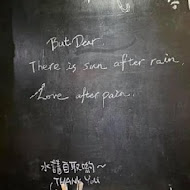 But Dear.
There is sun after rain,
Love after pain.
水請自取喲～
THANK YOU